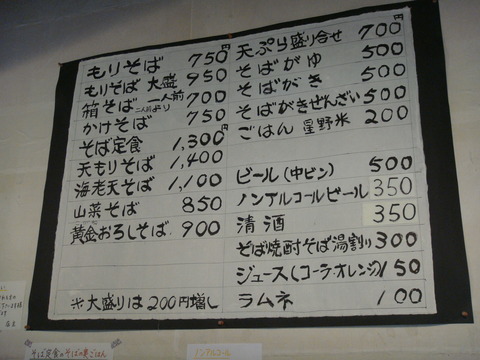 もりそば 750円
もりそば 大盛 950
箱そば 一人前 二人前より 700
かけそば 750
そば定食 1,300円
天もりそば 1,400
海老天そば 1,100
山菜そば 850
黄金おろしそば 900
※大盛りは200円増し
天ぷら盛り合せ 700円
そばがゆ 500
そばがき 500
そばがきぜんざい 500
ごはん 星野米 200
ビール(中ビン) 500
ノンアルコールビール 350
清酒 350
そば焼酎そば湯割り 300
ジュース(コーラ・オレンジ) 150
ラムネ 100
そば定食のそばの実ごはん
ノンアルコール